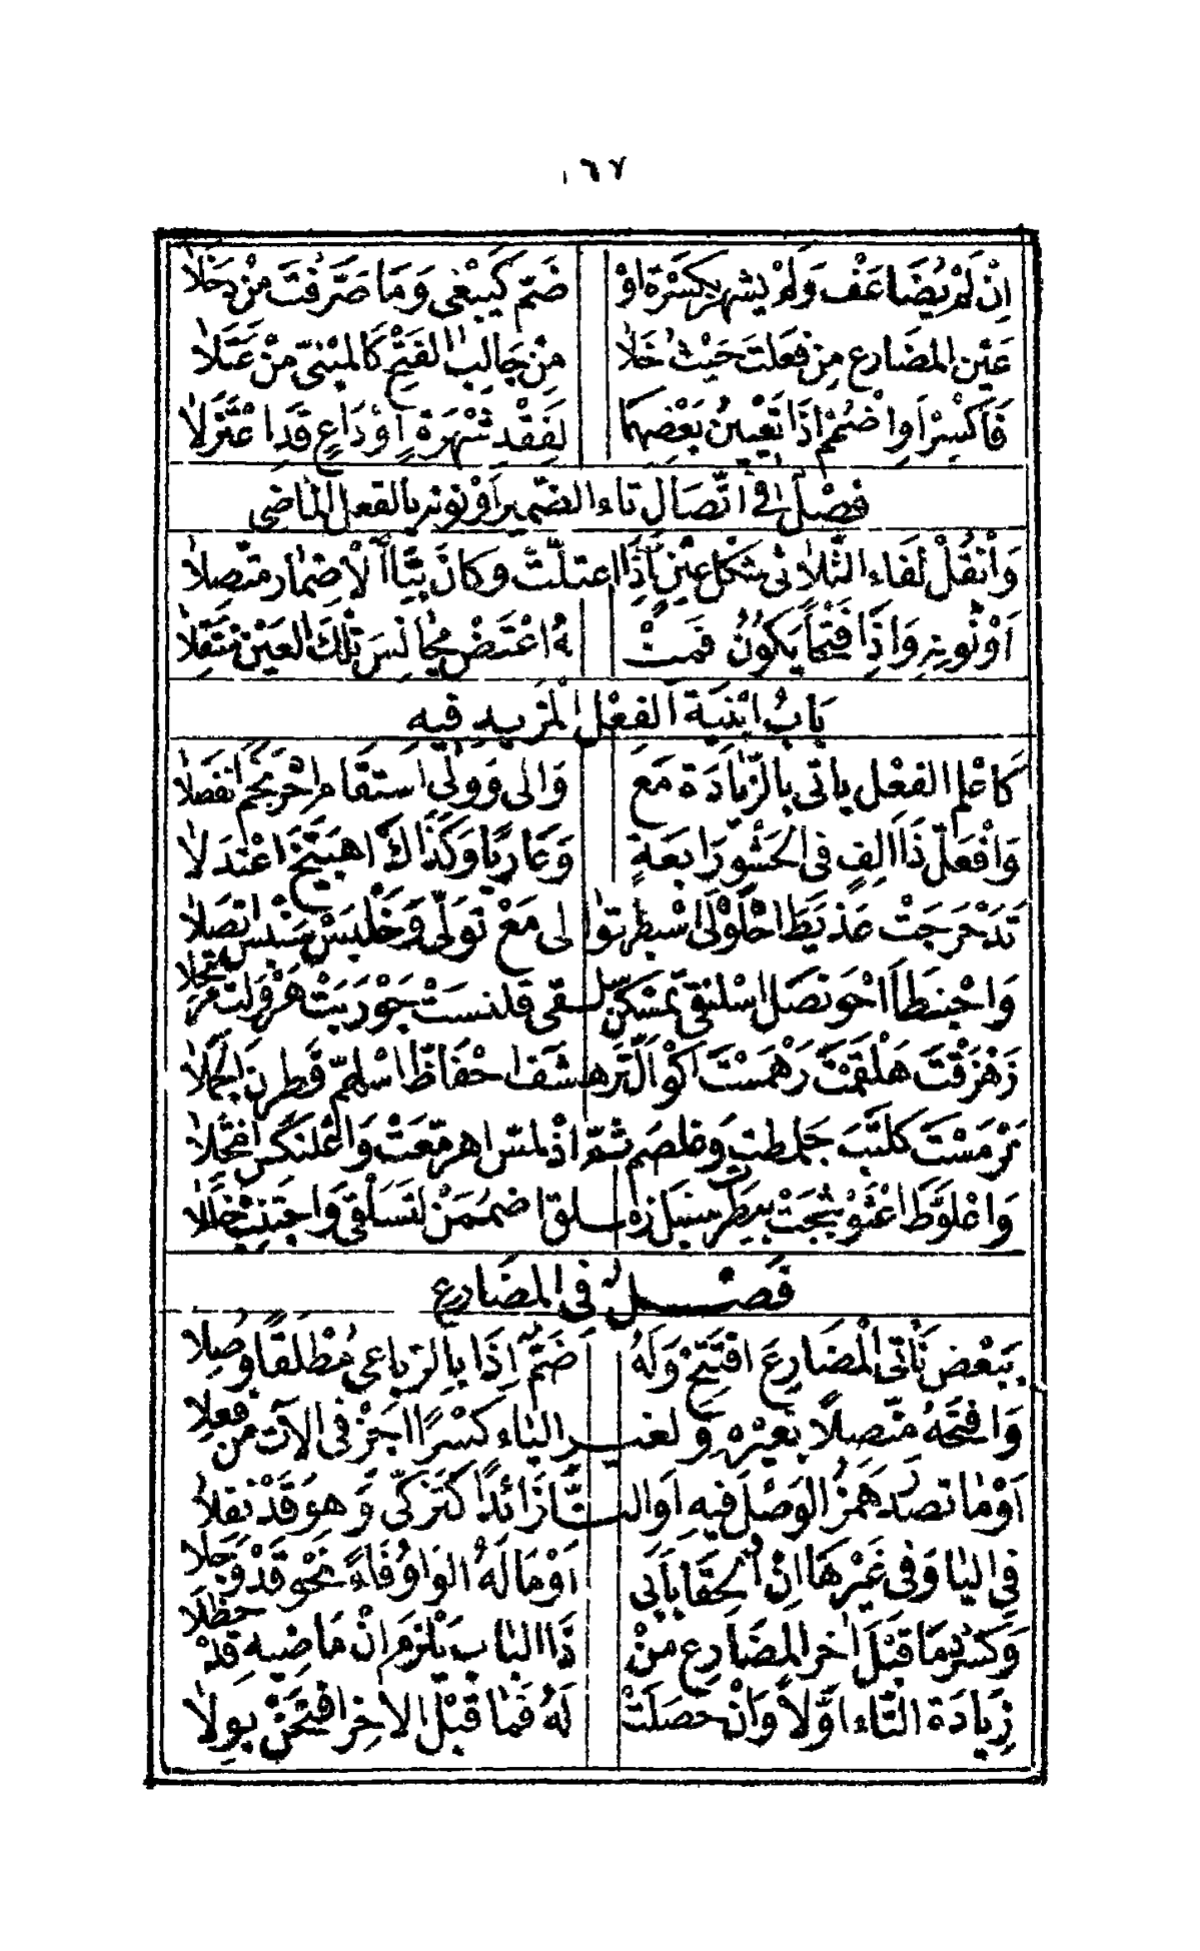 ٦٧
اِنْ لَمْ يُضَاعَفْ وَلَمْ يشهر بِكَسْرَةٍ اَوْ ضَمٍّ كَيَبْغِى وَمَا صَرَّفْتَ مِنْ دَخَلَا
عَيْنَ المضَارِعِ مِنْ فَعَلْتَ حَيْثُ خَلَا مِنْ جَالِبِ الفَتْحِ كَالمبْنِىِّ مِنْ عَتَلَا
فَاَكْسِرْ اَوِاضْمُمْ اِذَا تَعْيِينُ بَعْضِهِمَا لِفَقْدِ شُهْرَةٍ اَوْ دَاعٍ قَدِ اعْتَزَلَا
فَصْلٌ فى اتِّصَال تاء الضمير اَوْ نونه بالفعل الماضى
وَانْقُلْ لفَاء الثُّلَاثى شكْلَ عَيْنٍ اِذَا اعتلَّتْ وَكَانَ بِتَا الْاِضمار متّصلَا
اَوْ نُونِهِ وَاِذَا فَتْحًا يَكُونُ فَمِنْهُ اعْتَضْ مُجَانِسَ تلْكَ العَيْنِ مُنْتَقِلَا
بَابُ ابْنِيَة الفعْل المَزيد فيه
كَاَعْلَم الفعْل يأتى بالزِّيادَة مَعَ وَالى وَوَلّى استقَام احْرَنْجَم انفَصَلَا
وَافْعَلَّ ذَا اَلِفٍ فى الحَشْوِ رَابِعَةٍ وَعَارِيًا وَكَذَاكَ اهبَيَّخَ اعْتَدَلَا
تَدَحْرَجَتْ عَذْيَطَ احْلَوْلَى اسْبَطَرَّ تَوَالى مَعْ تَوَلَّى وَخَلْبَسْ سَنْبَسَ اتَّصَلَا
وَاحْبَنْطَأَ احْوَنْصَلَ اسْلَنْقَى تَمَسْكَنَ سَلْقَى قَلْنَسَتْ جَوْرَبَتْ هَرْوَلَتْ مُرْتَحِلَا
زَهْزَقْتَ هَلْقَمْتَ رَهْمَسْتَ اكْوَأَلَّ تَرَهْشَفَ احْفَاظَّ اسْلَهَمَّ قَطْرَنَ الجَمَلَا
تَرْمَسْتَ كَلْتَبَ جَلْمَطتَ وَغلصَمَ ثُمَّ ادْلَمَّسَ اهرمَّعَتْ وَاعْلَنْكَسَ انْتَخَلَا
وَاعْلَوَّطَ اعْثَوْثَجَتْ بَيْطَرْتَ سنبَلَ زَمْلَقَ اضْمُمَنْ لتَسَلْقَى وَاجتنبْ خَلَلَا
فَصْلٌ فى المضَارِع
بِبَعْض نَأْتى المُضَارِعَ افْتَتِحْ وَلَهُ ضَمٌّ اِذَا بِالرّباعى مُطْلَقًا وُصِلَا
وَافْتَحْهُ مُتَّصِلًا بِغَيْرِهِ وَلغير اليَاء كَسْرًا اَجِزْ فى الآتِ من فَعِلَا
اَوْ مَا تَصَدَّرَ هَمْزُ الوَصْل فيهِ اَوِ التَّا زَائدًا كَتَزَكّى وَهوَ قَدْ نقِلَا
فى اليَا وَفى غَيْرِهَا اِنْ اُلْحِقَا بِاَبَى اَوْ مَا لَهُ الوَاوُ فَاءً نَحْو قَدْ وَجِلَا
وَكَسْرُ مَا قَبْلَ آخِرِ المضَارِعِ مِنْ ذَا البَاب يَلْزم اِنْ مَاضِيهِ قَدْ حُظِلَا
زِيَادَةَ التَّاء اَوَّلًا وَاِنْ حَصَلَتْ لَهُ فَمَا قَبْلَ الاٰخِرِ افْتَحَنْ بِوِلَا